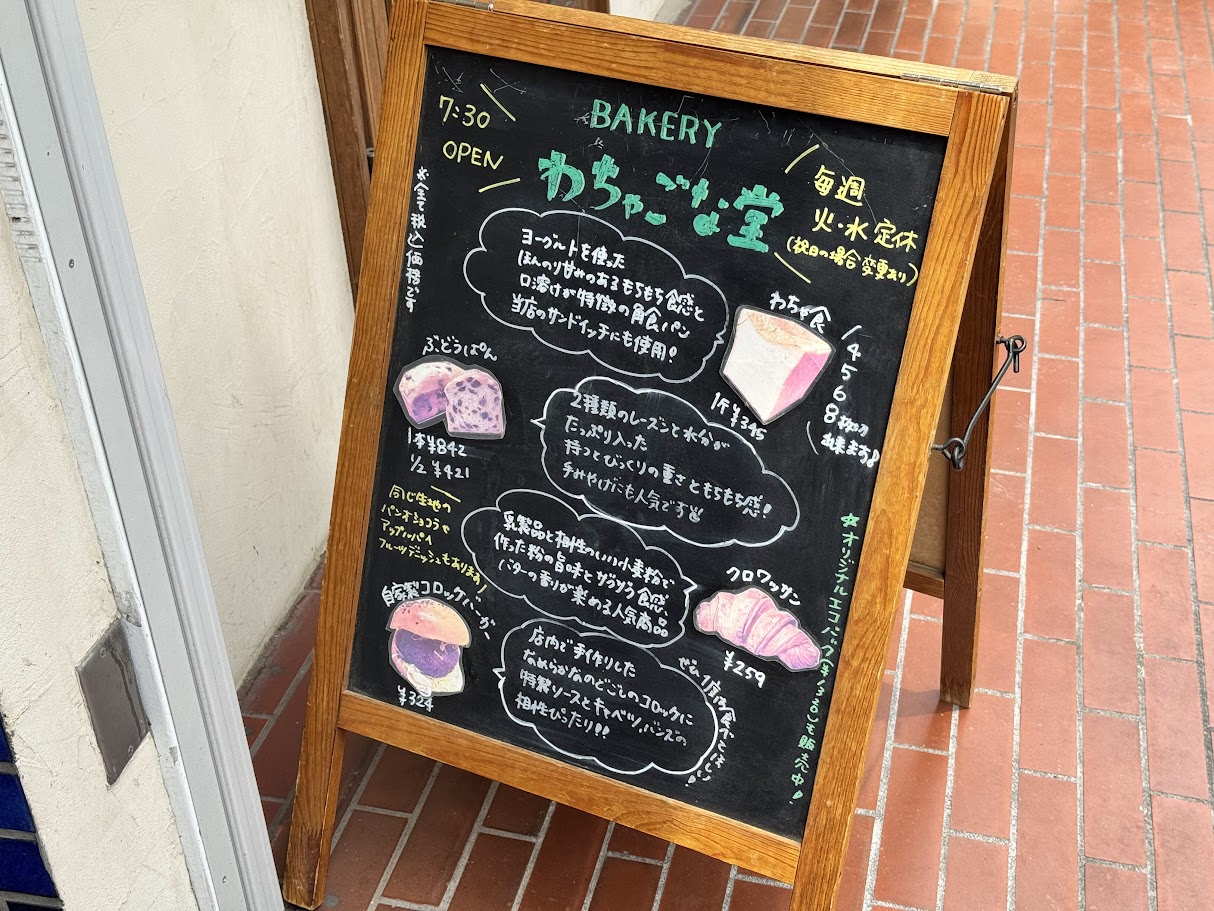 7:30
OPEN
BAKERY
わちゃごな堂
毎週
火・水定休
(祝日の場合変更あり)
※全て税込価格です
ヨーグルトを使った
ほんのり甘みのあるもちもち食感と
口溶けが特徴の角食パン
当店のサンドイッチにも使用!
わちゃ食
1斤¥345
4
5
6
8枚切
出来ます♪
ぶどうぱん
1本¥842
1/2 ¥421
2種類のレーズンと水分が
たっぷり入った
持つとびっくりの重さともちもち感!
手みやげにも人気です
同じ生地の
パンオショコラや
アップルパイ
フルーツデニッシュもあります
乳製品と相性のいい小麦粉で
作った粉の旨味とザクザク食感、
バターの香りが楽める人気商品
クロワッサン
¥259
自家製コロッケバーガー
¥324
店内で手作りした
なめらかなのどごしのコロッケに
特製ソースとキャベツ、バンズの
相性ぴったり!!
ぜひ1度お食べてほしい!
☆オリジナルエコバック(¥330)も販売中!